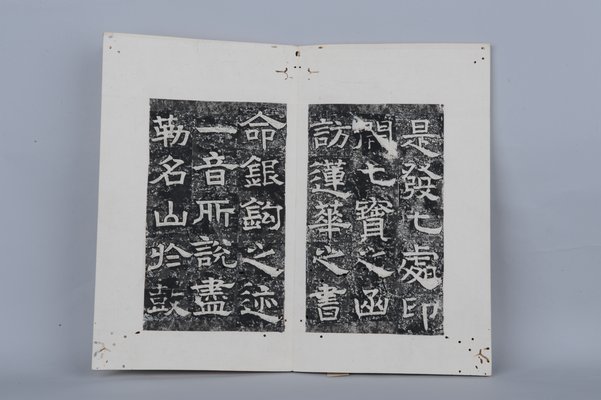 是發七處印
開七寶之函
訪蓮華之書
命銀鉤之迹
一音所說盡
勒名山於鼓